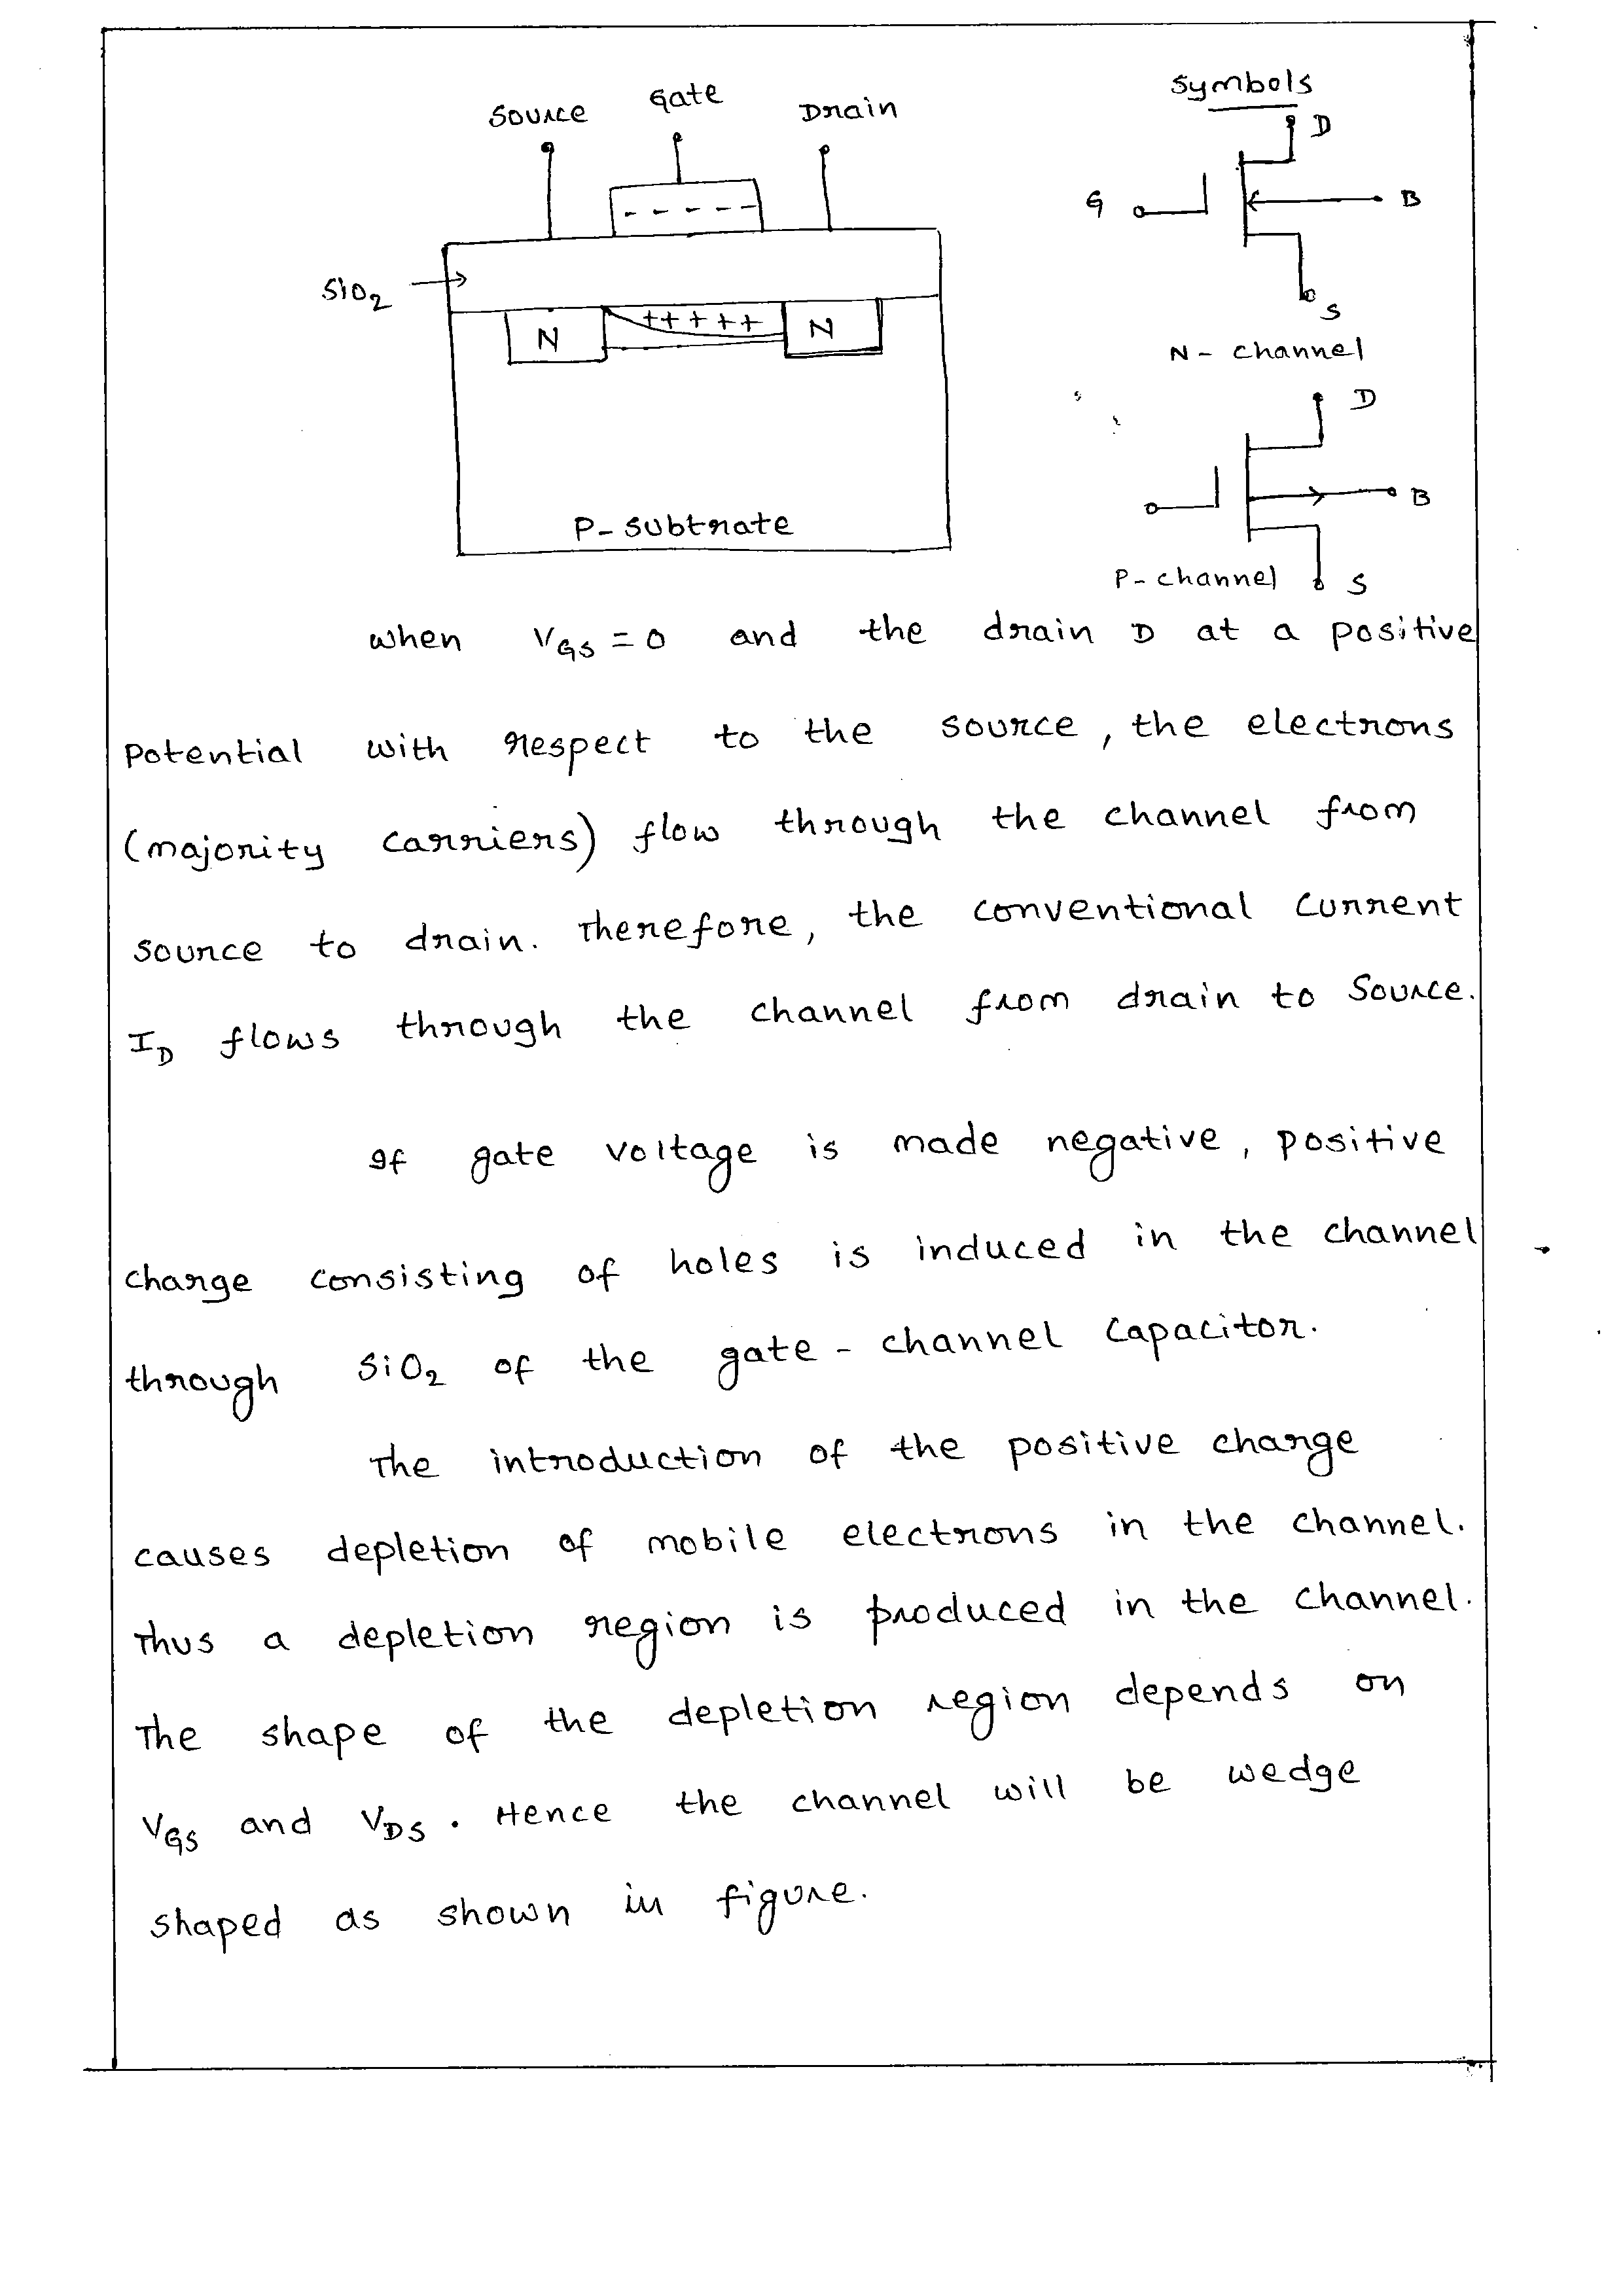 Source Gate Drain
SiO2
N +++++ N
P-subtrate
Symbols
D
G B
S
N-channel
D
B
P-channel S
when VGS=0 and the drain D at a positive
potential with respect to the source, the electrons
(majority carriers) flow through the channel from
source to drain. Therefore, the conventional current
ID flows through the channel from drain to source.
If gate voltage is made negative, positive
charge consisting of holes is induced in the channel
through SiO2 of the gate-channel capacitor.
The introduction of the positive charge
causes depletion of mobile electrons in the channel.
Thus a depletion region is produced in the channel.
The shape of the depletion region depends on
VGS and VDS. Hence the channel will be wedge
shaped as shown in figure.